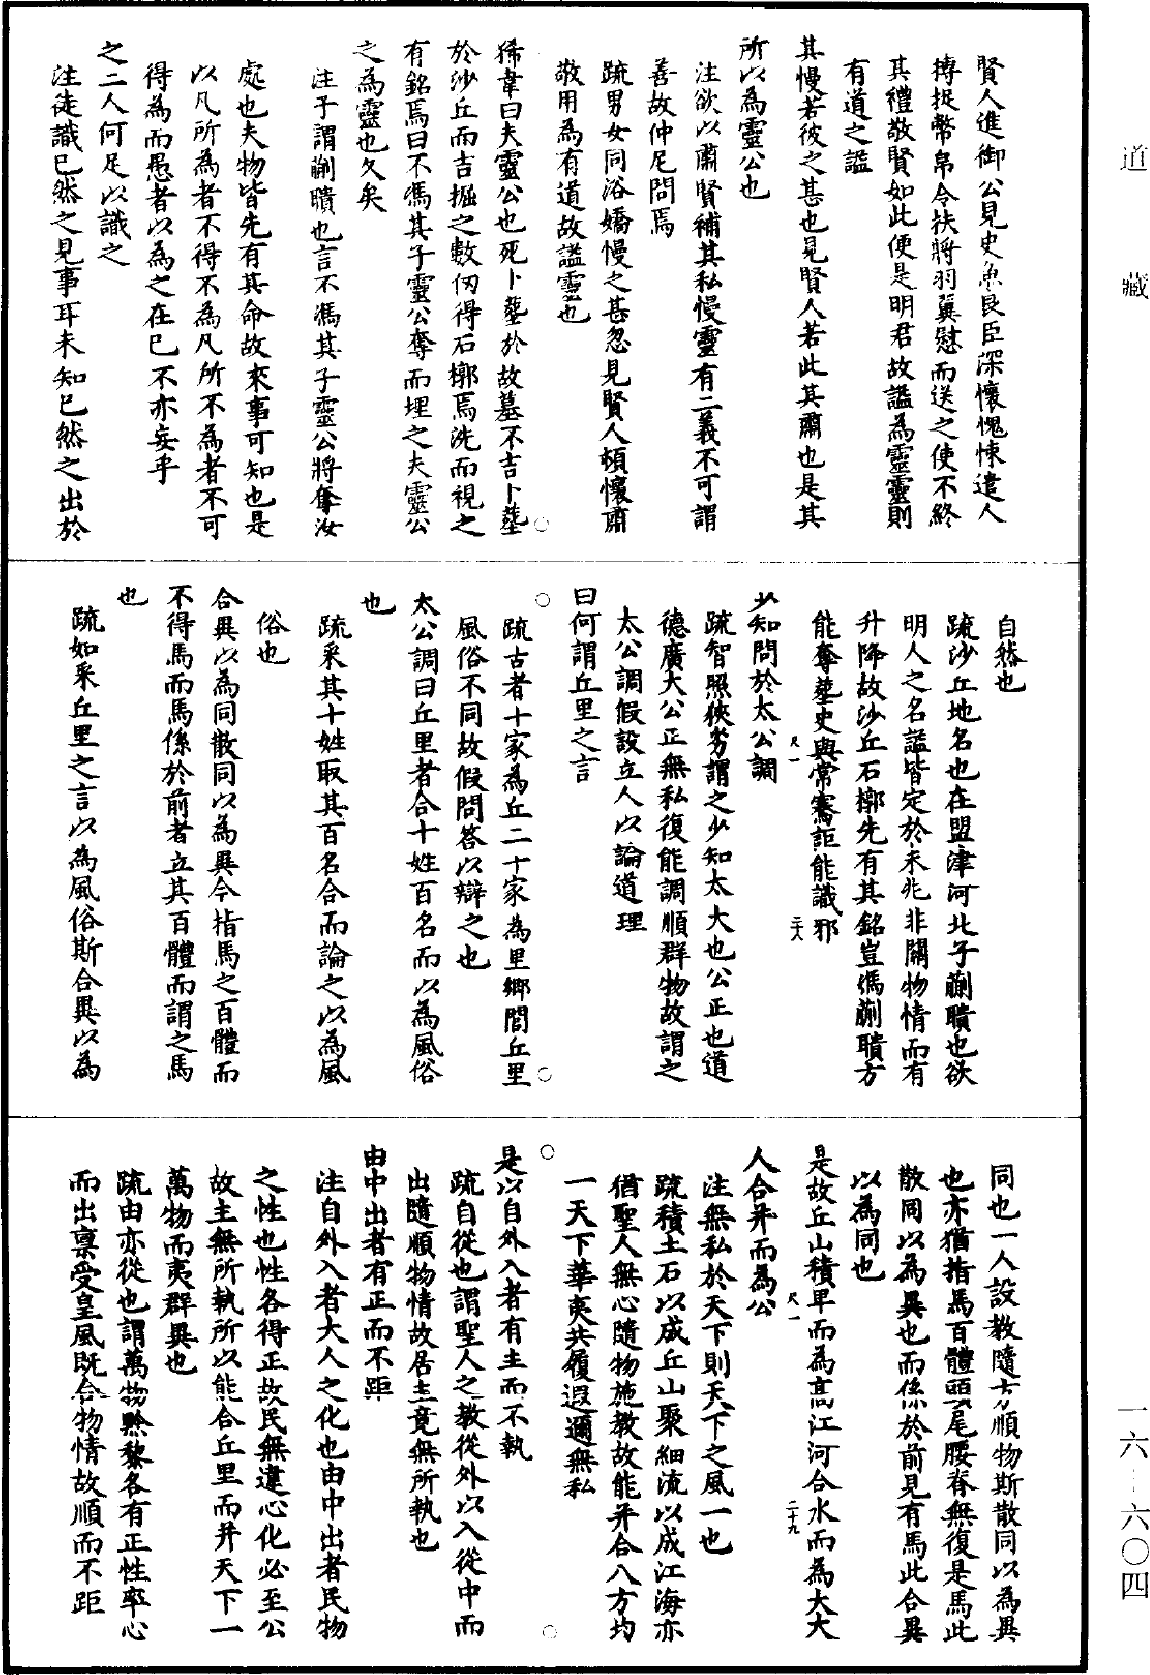 道藏
賢人進御公見史魚良臣深懷愧悚遣人
搏捉幣帛令扶將羽翼慰而送之使不終
其禮敬賢如此便是明君故謚為靈靈則
有道之謚
其慢若彼之甚也見賢人若此其肅也是其
所以為靈公也
注欲以肅賢補其私慢靈有二義不可謂
善故仲尼問焉
疏男女同浴嬌慢之甚忽見賢人頓懷肅
敬用為有道故謚靈也
狶韋曰夫靈公也死卜塟於故墓不吉卜塟
於沙丘而吉掘之數仞得石槨焉洗而視之
有銘焉曰不馮其子靈公奪而埋之夫靈公
之為靈也久矣
注子謂蒯聵也言不馮其子靈公將奪汝
處也夫物皆先有其命故來事可知也是
以凡所為者不得不為凡所不為者不可
得為而愚者以為之在己不亦妄乎
之二人何足以識之
注徒識已然之見事耳未知已然之出於
自然也
疏沙丘地名也在盟津河北子蒯聵也欲
明人之名謚皆定於未兆非關物情而有
升降故沙丘石槨先有其銘豈馮蒯聵方
能奪塟史與常騫詎能識邪
尺一
二十八
少知問於太公調
疏智照狹劣謂之少知太大也公正也道
德廣大公正無私復能調順群物故謂之
太公調假設立人以論道理
曰何謂丘里之言
疏古者十家為丘二十家為里鄉閭丘里
風俗不同故假問答以辯之也
太公調曰丘里者合十姓百名而以為風俗
也
疏采其十姓取其百名合而論之以為風
俗也
合異以為同散同以為異今指馬之百體而
不得馬而馬係於前者立其百體而謂之馬
也
疏如采丘里之言以為風俗斯合異以為
同也一人設教隨方順物斯散同以為異
也亦猶指馬百體頭尾腰脊無復是馬此
散同以為異也而係於前見有馬此合異
以為同也
是故丘山積卑而為高江河合水而為大大
尺一
二十九
人合并而為公
注無私於天下則天下之風一也
疏積土石以成丘山聚細流以成江海亦
猶聖人無心隨物施教故能并合八方均
一天下華夷共履遐邇無私
是以自外入者有主而不執
疏自從也謂聖人之教從外以入從中而
出隨順物情故居主竟無所執也
由中出者有正而不距
注自外入者大人之化也由中出者民物
之性也性各得正故民無違心化必至公
故主無所執所以能合丘里而并天下一
萬物而夷群異也
疏由亦從也謂萬物黔黎各有正性率心
而出稟受皇風既合物情故順而不距
一六—六〇四